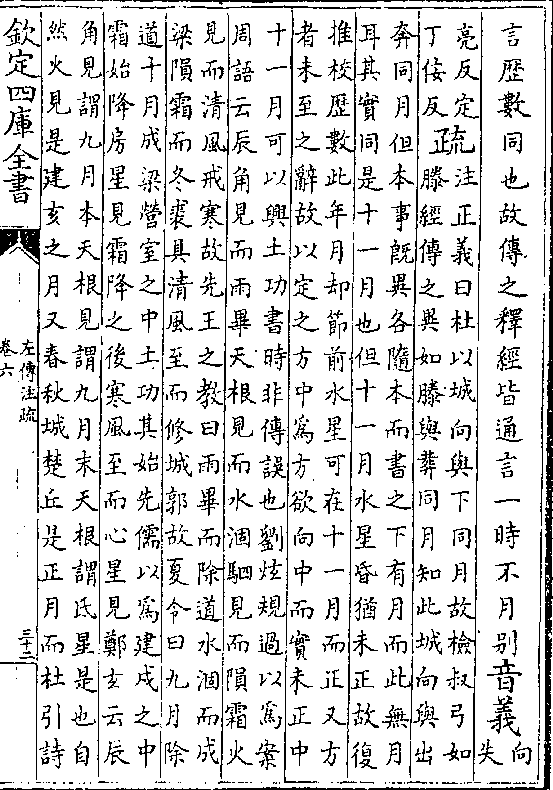 言歴數同也故傳之釋經皆通言一時不月別音義向失
亮反定丁佞反疏注正義曰杜以城向與下同月故檢叔弓如
滕經傳之異如滕與葬同月知此城向與出
奔同月但本事既異各隨本而書之下有月而此無月
耳其實同是十一月也但十一月水星昏猶未正故復
推校歴數此年月却節前水星可在十一月而正又方
者未至之辭故以定之方中爲方欲向中而實未正中
十一月可以興土功書時非傳誤也劉炫規過以爲案
周語云辰角見而雨畢天根見而水涸駟見而隕霜火
見而清風戒寒故先王之教曰雨畢而除道水涸而成
梁隕霜而冬裘具清風至而修城郭故夏令曰九月除
道十月成梁營室之中土功其始先儒以爲建戌之中
霜始降房星見霜降之後寒風至而心星見鄭玄云辰
角見謂九月本天根見謂九月末天根謂氐星是也自
然火見是建亥之月又春秋城楚丘是正月而杜引詩
欽定四庫全書
左傳注疏
卷六
三十二